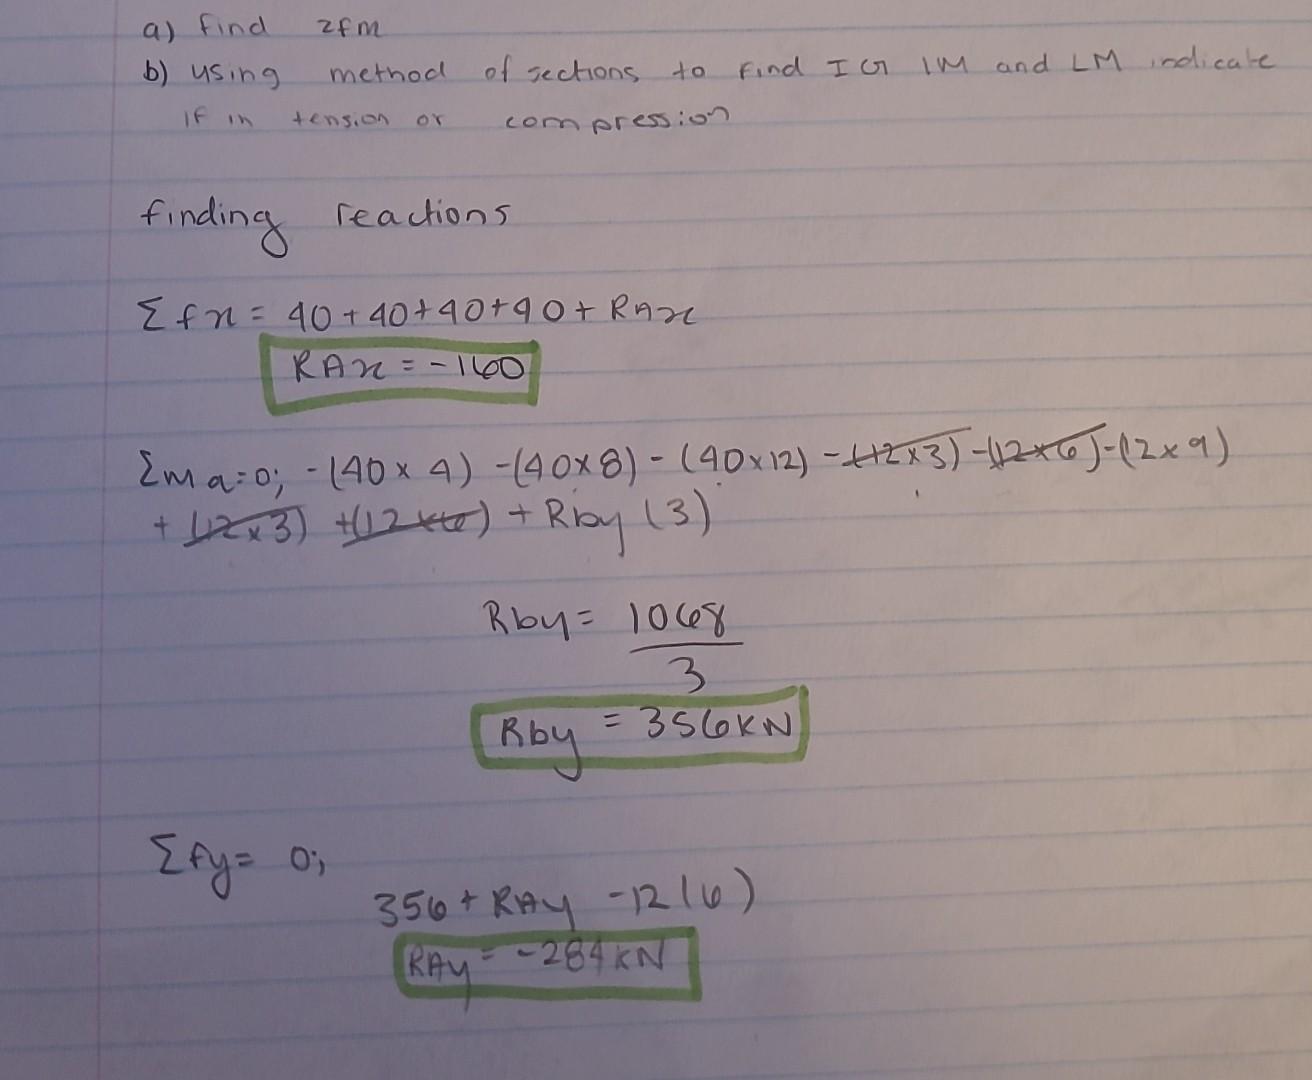 a) find zfm
b) using method of sections to find IG IM and LM indicate
if in tension or compression
finding reactions
Σfx = 40+40+40+40+RAx
RAx = -160
Σma=0; -(40×4) -(40×8) - (40×12) -(12×3) -(12×6) -(12×9)
+ (12×3) +(12×6) + Rby (3)
Rby = 1068
3
Rby = 356KN
Σfy= 0;
356 + RAy -12(6)
RAy = -284KN